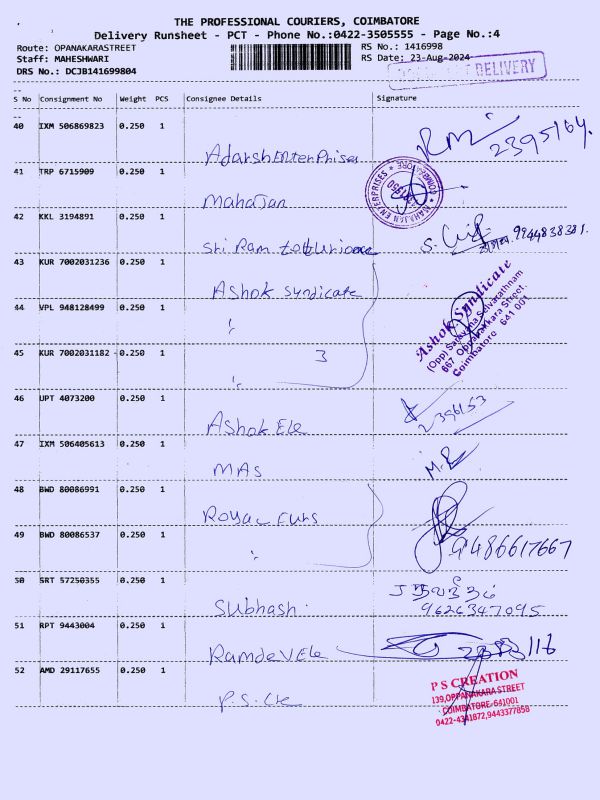 THE PROFESSIONAL COURIERS, COIMBATORE
Delivery Runsheet - PCT - Phone No.:0422-3505555 - Page No.:4
Route: OPANAKARASTREET
RS No.: 1416998
Staff: MAHESHWARI
RS Date: 23-Aug-2024
DRS No.: DCJB141699804
DELIVERY
S No Consignment No Weight PCS Consignee Details Signature
40 IXM 506869823 0.250 1
Adarsh Enterprises
2395164.
41 TRP 6715909 0.250 1
Mahajan
MAHAJAN ENTERPRISES * COIMBATORE *
42 KKL 3194891 0.250 1
Sri Ram
9944838381.
43 KUR 7002031236 0.250 1
Ashok Syndicate
44 VPL 948128499 0.250 1
"
Ashok Syndicate
(Opp) Saravana Selvarathnam
667, Oppanakkara Street,
Coimbatore - 641 001
45 KUR 7002031182 - 0.250 1
3
"
46 UPT 4073200 0.250 1
Ashok Ele
2396153
47 IXM 506405613 0.250 1
MAS
48 BWD 80086991 0.250 1
Royal Furs
49 BWD 80086537 0.250 1
"
9486617667
50 SRT 57250355 0.250 1
Subhash.
9626347095
51 RPT 9443004 0.250 1
Ramdev Ele
52 AMD 29117655 0.250 1
P.S.
P S CREATION
139,OPPANAKARA STREET
COIMBATORE-641001
0422-4341872,9443377858